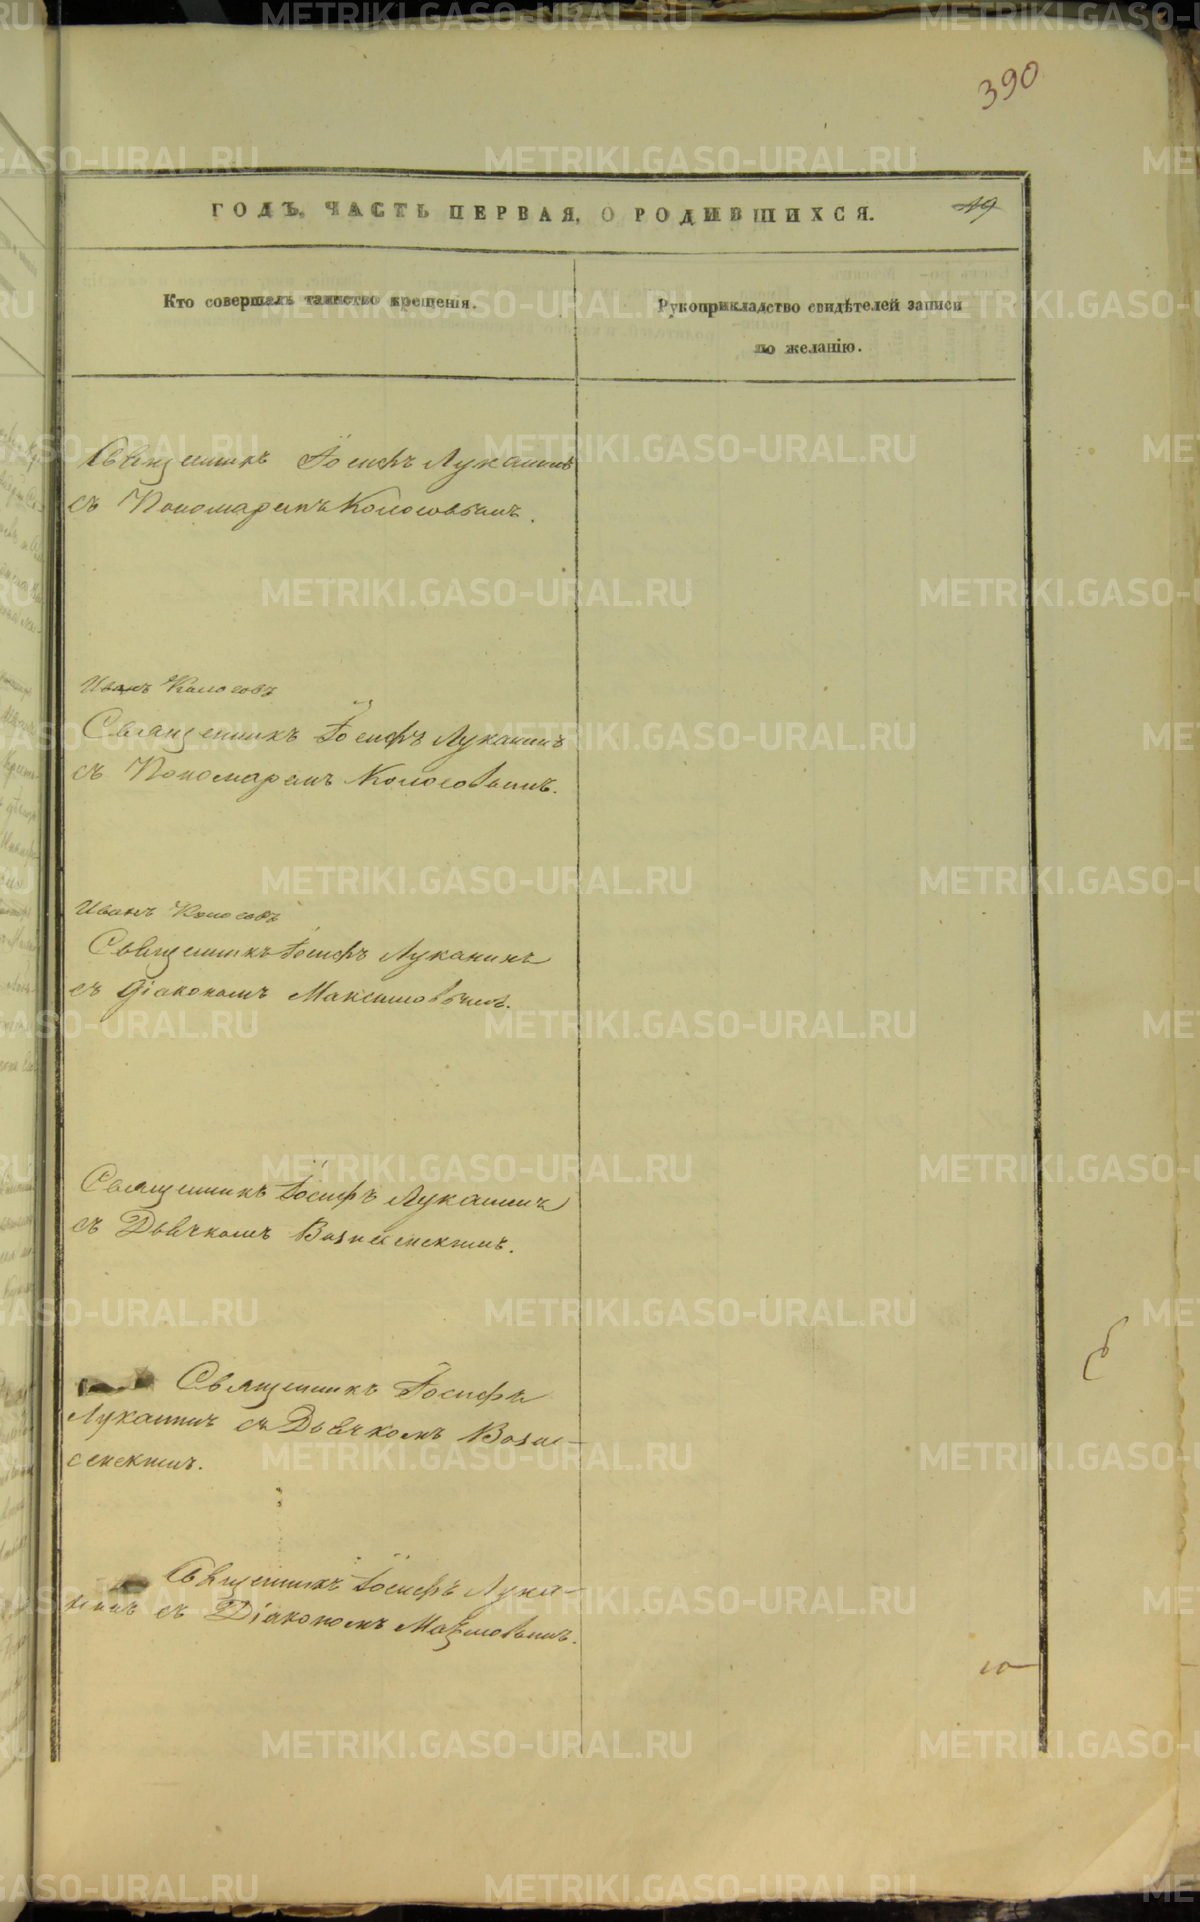 390
ГОДЪ, ЧАСТЬ ПЕРВАЯ, О РОДИВШИХСЯ.
49
Кто совершалъ таинство крещенія.
Рукоприкладство свидѣтелей записи
по желанію.
Священникъ Іосифъ Луканинъ
съ Пономаремъ Колосовымъ.
Иванъ Колосовъ
Священникъ Іосифъ Луканинъ
съ Пономаремъ Колосовымъ.
Иванъ Колосовъ
Священникъ Іосифъ Луканинъ
съ Діакономъ Максимовымъ.
Священникъ Іосифъ Луканинъ
съ Дьячкомъ Вознесенскимъ.
Священникъ Іосифъ
Луканинъ съ Дьячкомъ Возне-
сенскимъ.
Священникъ Іосифъ Лука-
нинъ съ Діакономъ Максимовымъ.
METRIKI.GASO-URAL.RU